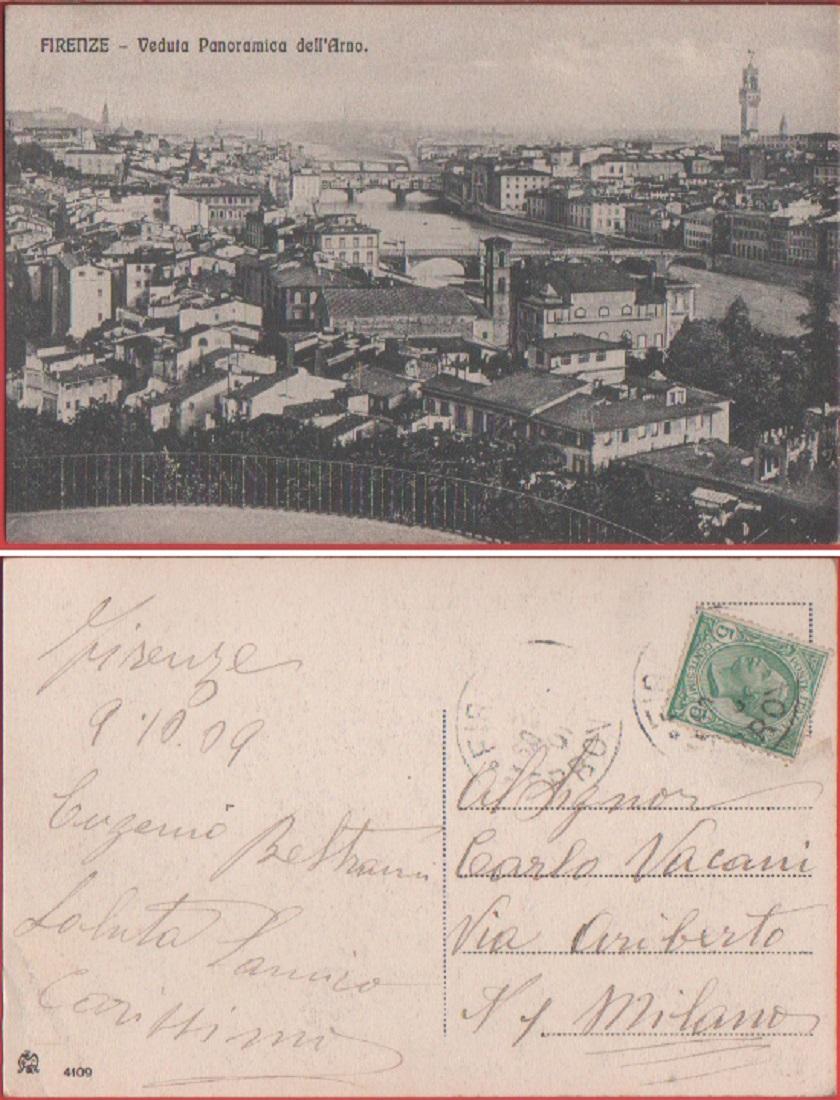 FIRENZE – Veduta Panoramica dell'Arno.
Firenze
9.10.09
Eugenio Beltrami
Saluta l'amico
Carissimo
Al Signor
Carlo Vacani
Via Ariberto
N 1 Milano
CENTESIMI
POSTE
5
FIR
ROV
4109